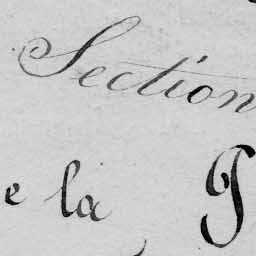 Section
e la P